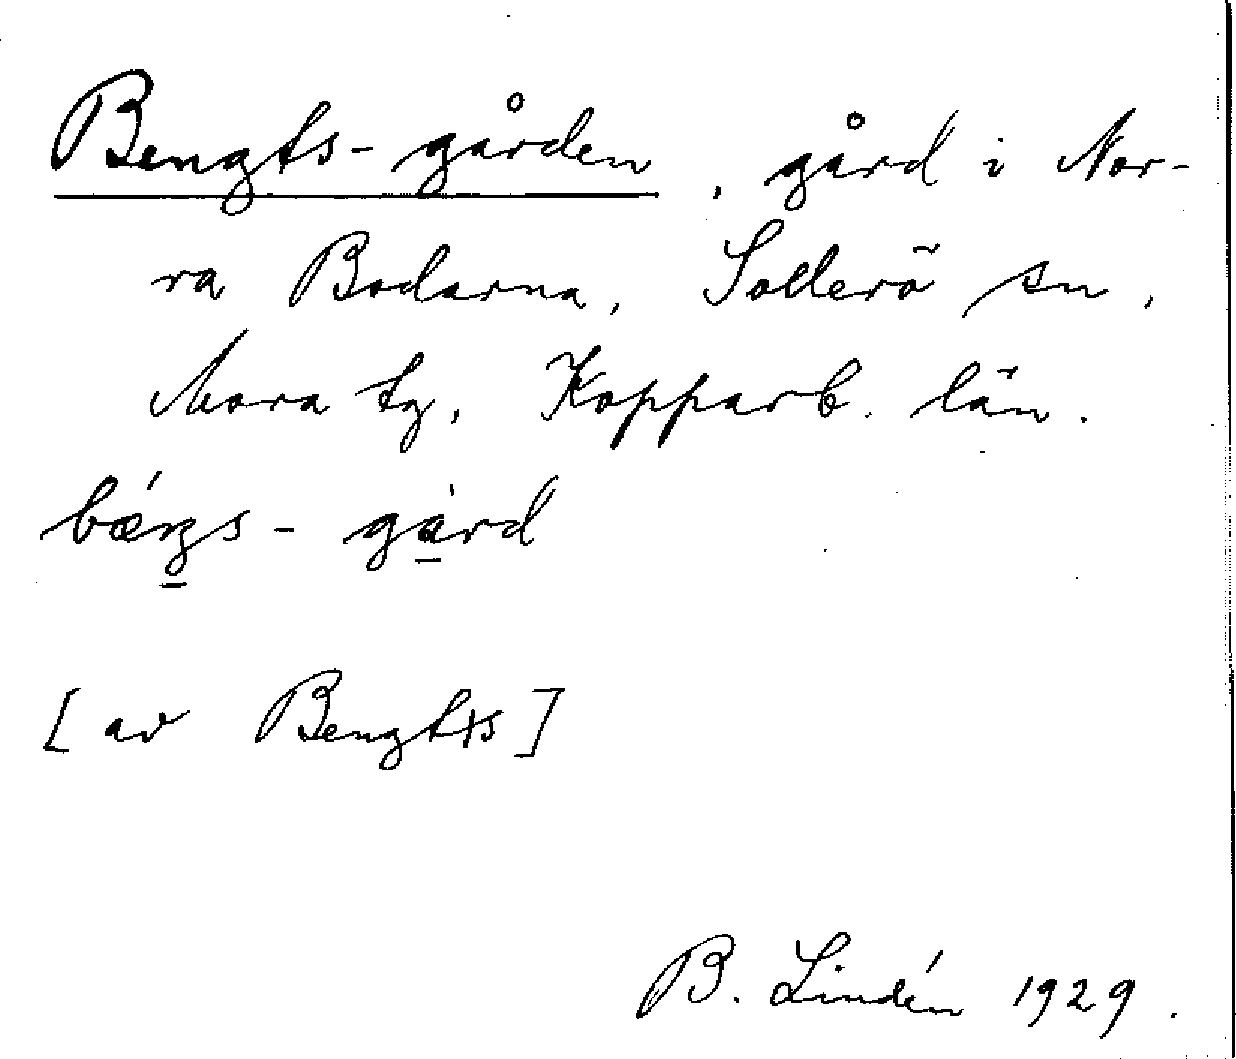 Bengts-gården, gård i Nor-
ra Bodarna, Sollerö sn,
Mora tg, Kopparb. län.
bǽngs-gàrd
[av Bengts]
B. Lindén 1929.